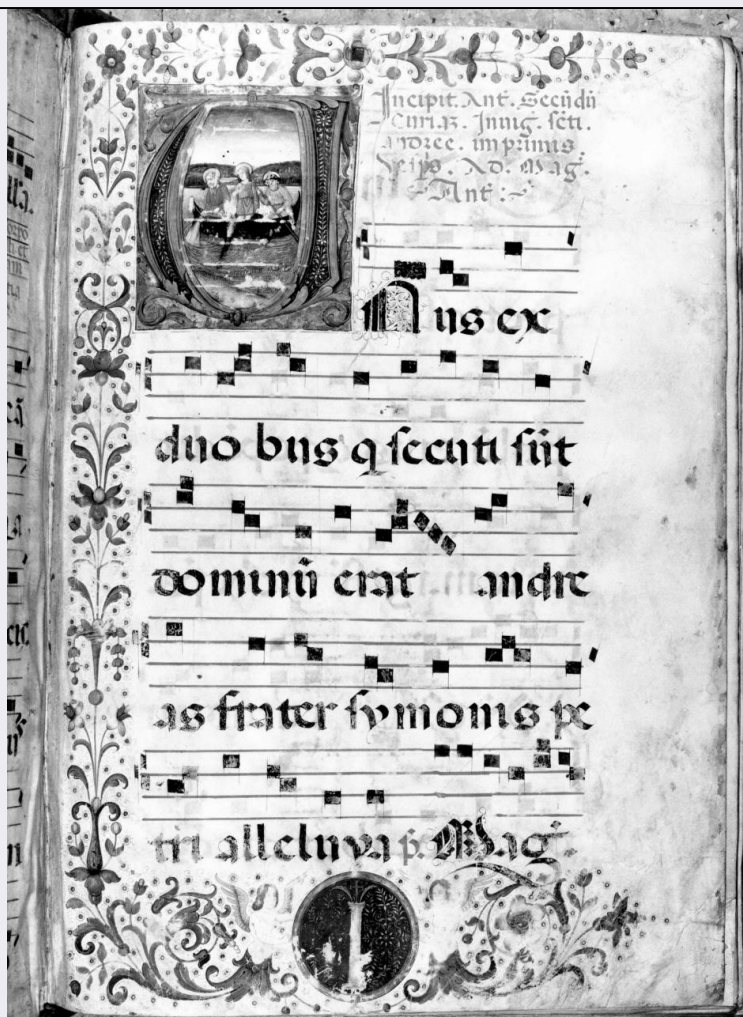 Incipit. Ant. Secũdũ
Curiã. In uig. sc̃ti.
andree. in primis
Ve[s]p̃s. Ad. Mag̃.
Ant:~
Unus ex
duo bus q̃ secuti sũt
dominũ erat andre
as frater symonis pe
tri alleluya p̃. Mag̃.